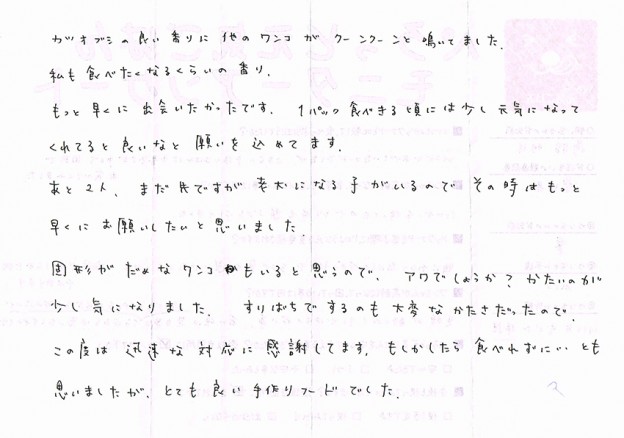 カツオブシの良い香りに他のワンコがクーンクーンと鳴いてました。
私も食べたくなるくらいの香り。
もっと早くに出会いたかったです。1パック食べきる頃には少し元気になって
くれてると良いなと願いを込めてます。
あと2人、まだ先ですが老犬になる子がいるのでその時はもっと
早くにお願いしたいと思いました。
固形がだめなワンコもいると思うので、アワでしょうか?かたいのが
少し気になりました。すりばちでするのも大変なかたさだったので。
この度は迅速な対応に感謝してます。もしかしたら食べれずに…とも
思いましたが、とても良い手作りフードでした。